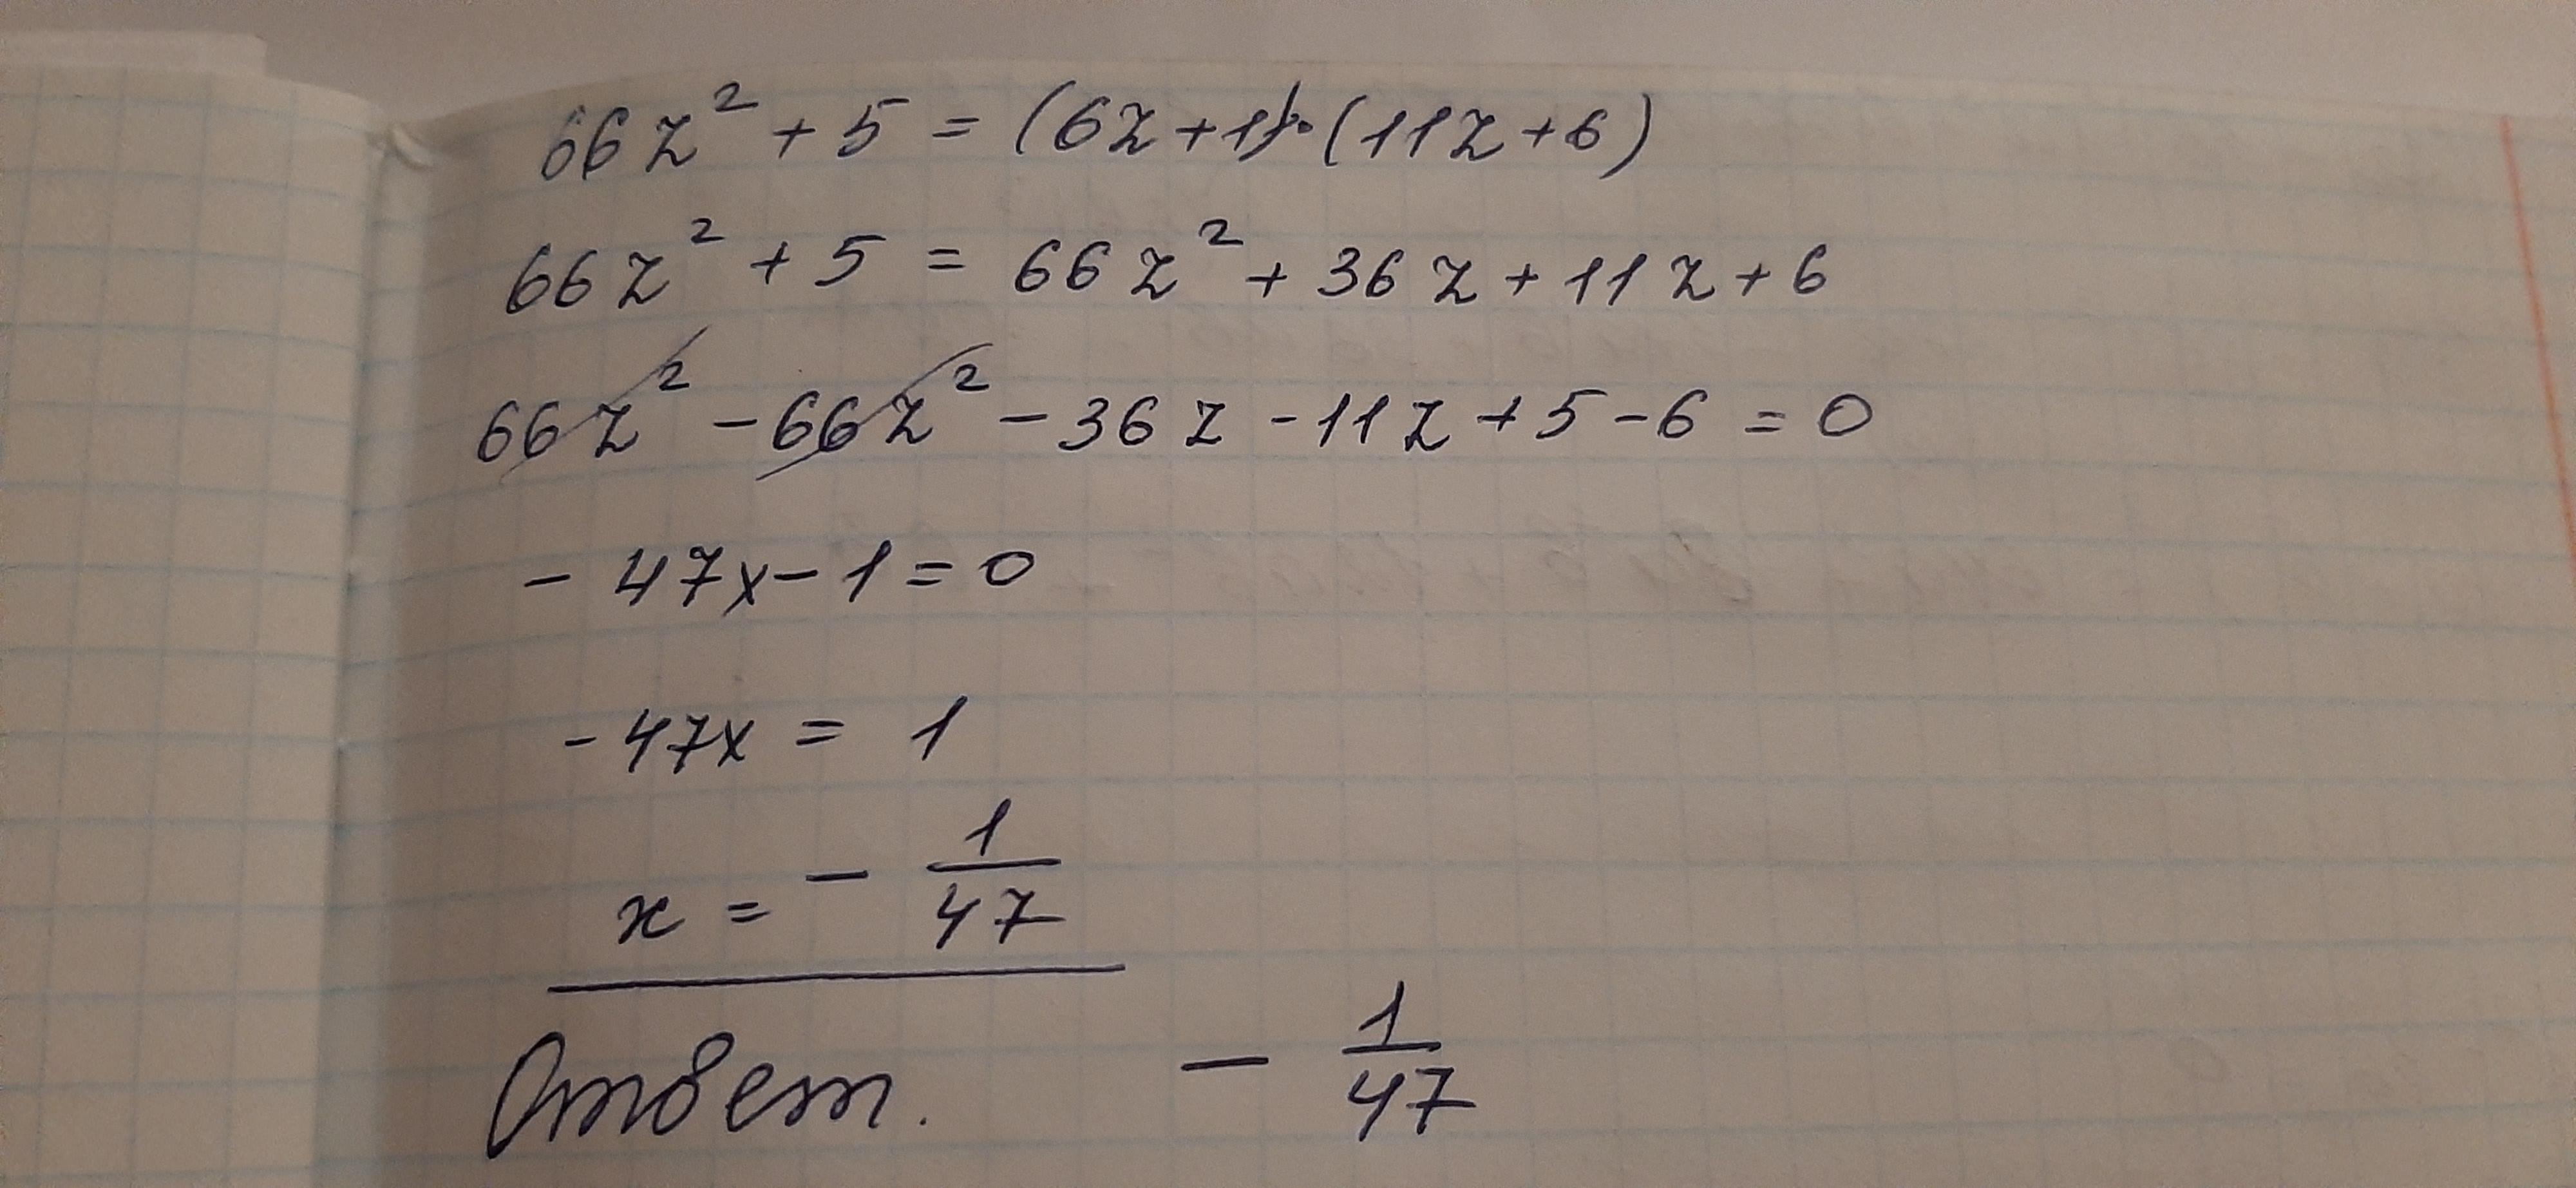 66z² + 5 = (6z + 1) · (11z + 6)
66z² + 5 = 66z² + 36z + 11z + 6
66z² - 66z² - 36z - 11z + 5 - 6 = 0
- 47x - 1 = 0
- 47x = 1
x = - 1/47
Ответ. - 1/47